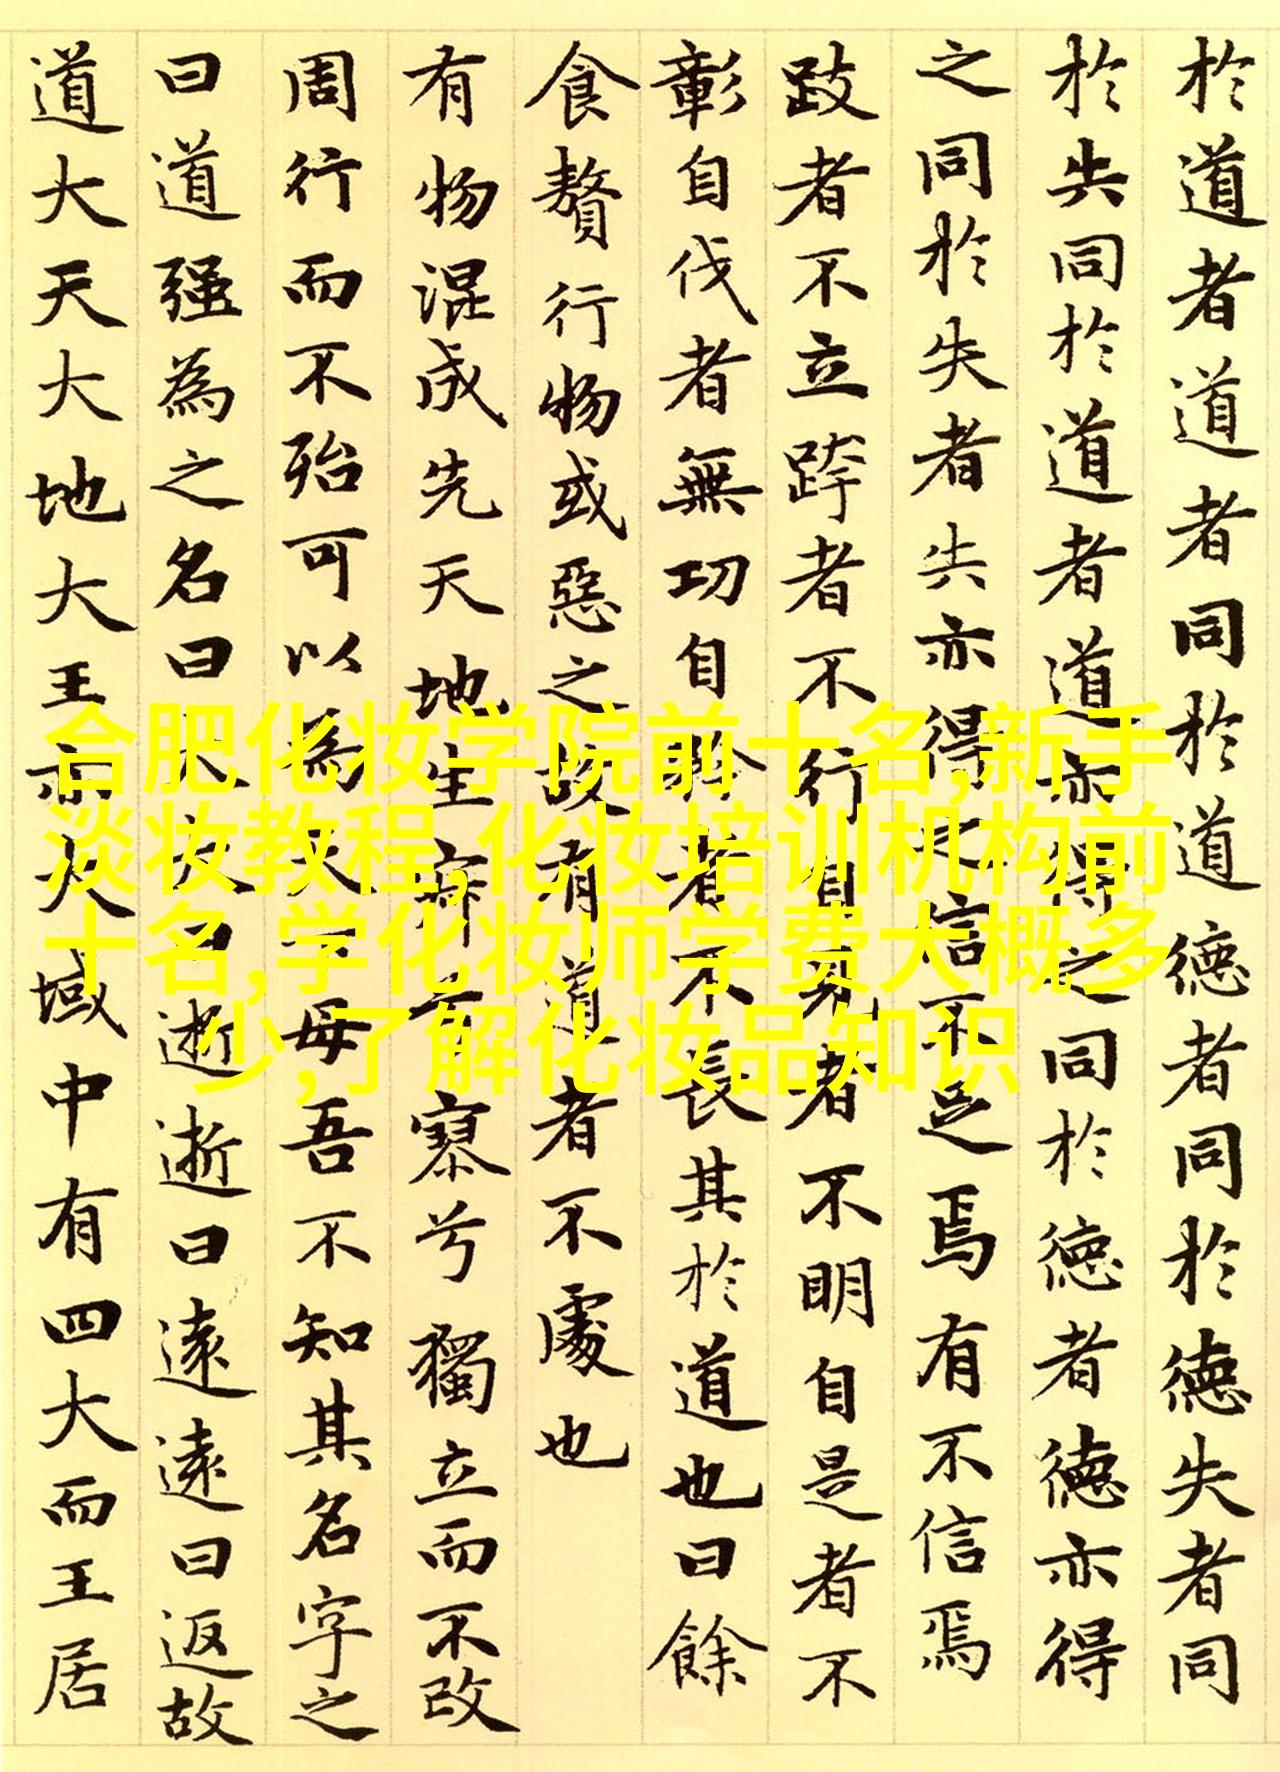 於道者道者同於道德者同於德失者同
於失同於道者道亦得之同於德者德亦得
之同於失者失亦得之信不足焉有不信焉
跂者不立跨者不行自見者不明自是者不
彰自伐者無功自矜者不長其於道也曰餘
食贅行物或惡之故有道者不處也
有物混成先天地生寂兮寥兮獨立而不改
周行而不殆可以為天下母吾不知其名字之
曰道强為之名曰大大曰逝逝曰遠遠曰返故
道大天大地大王亦大域中有四大而王居
合肥化妆学院前十名,新手
淡妆教程,化妆培训机构前
十名,学化妆师学费大概多
少,了解化妆品知识